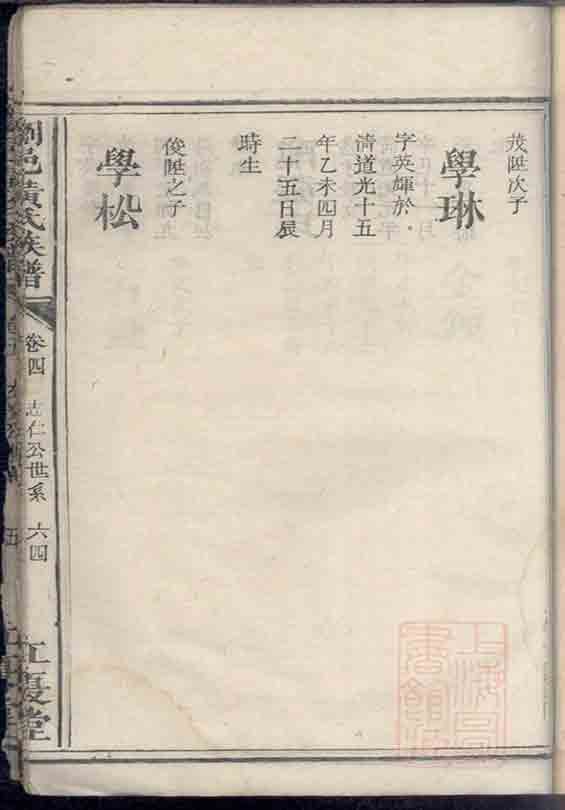 茂陞次子
學琳
字英輝於
清道光十五
年乙未四月
二十五日辰
時生
俊陞之子
學松
邑黃氏族譜
卷四
志仁公世系
六四
江夏堂